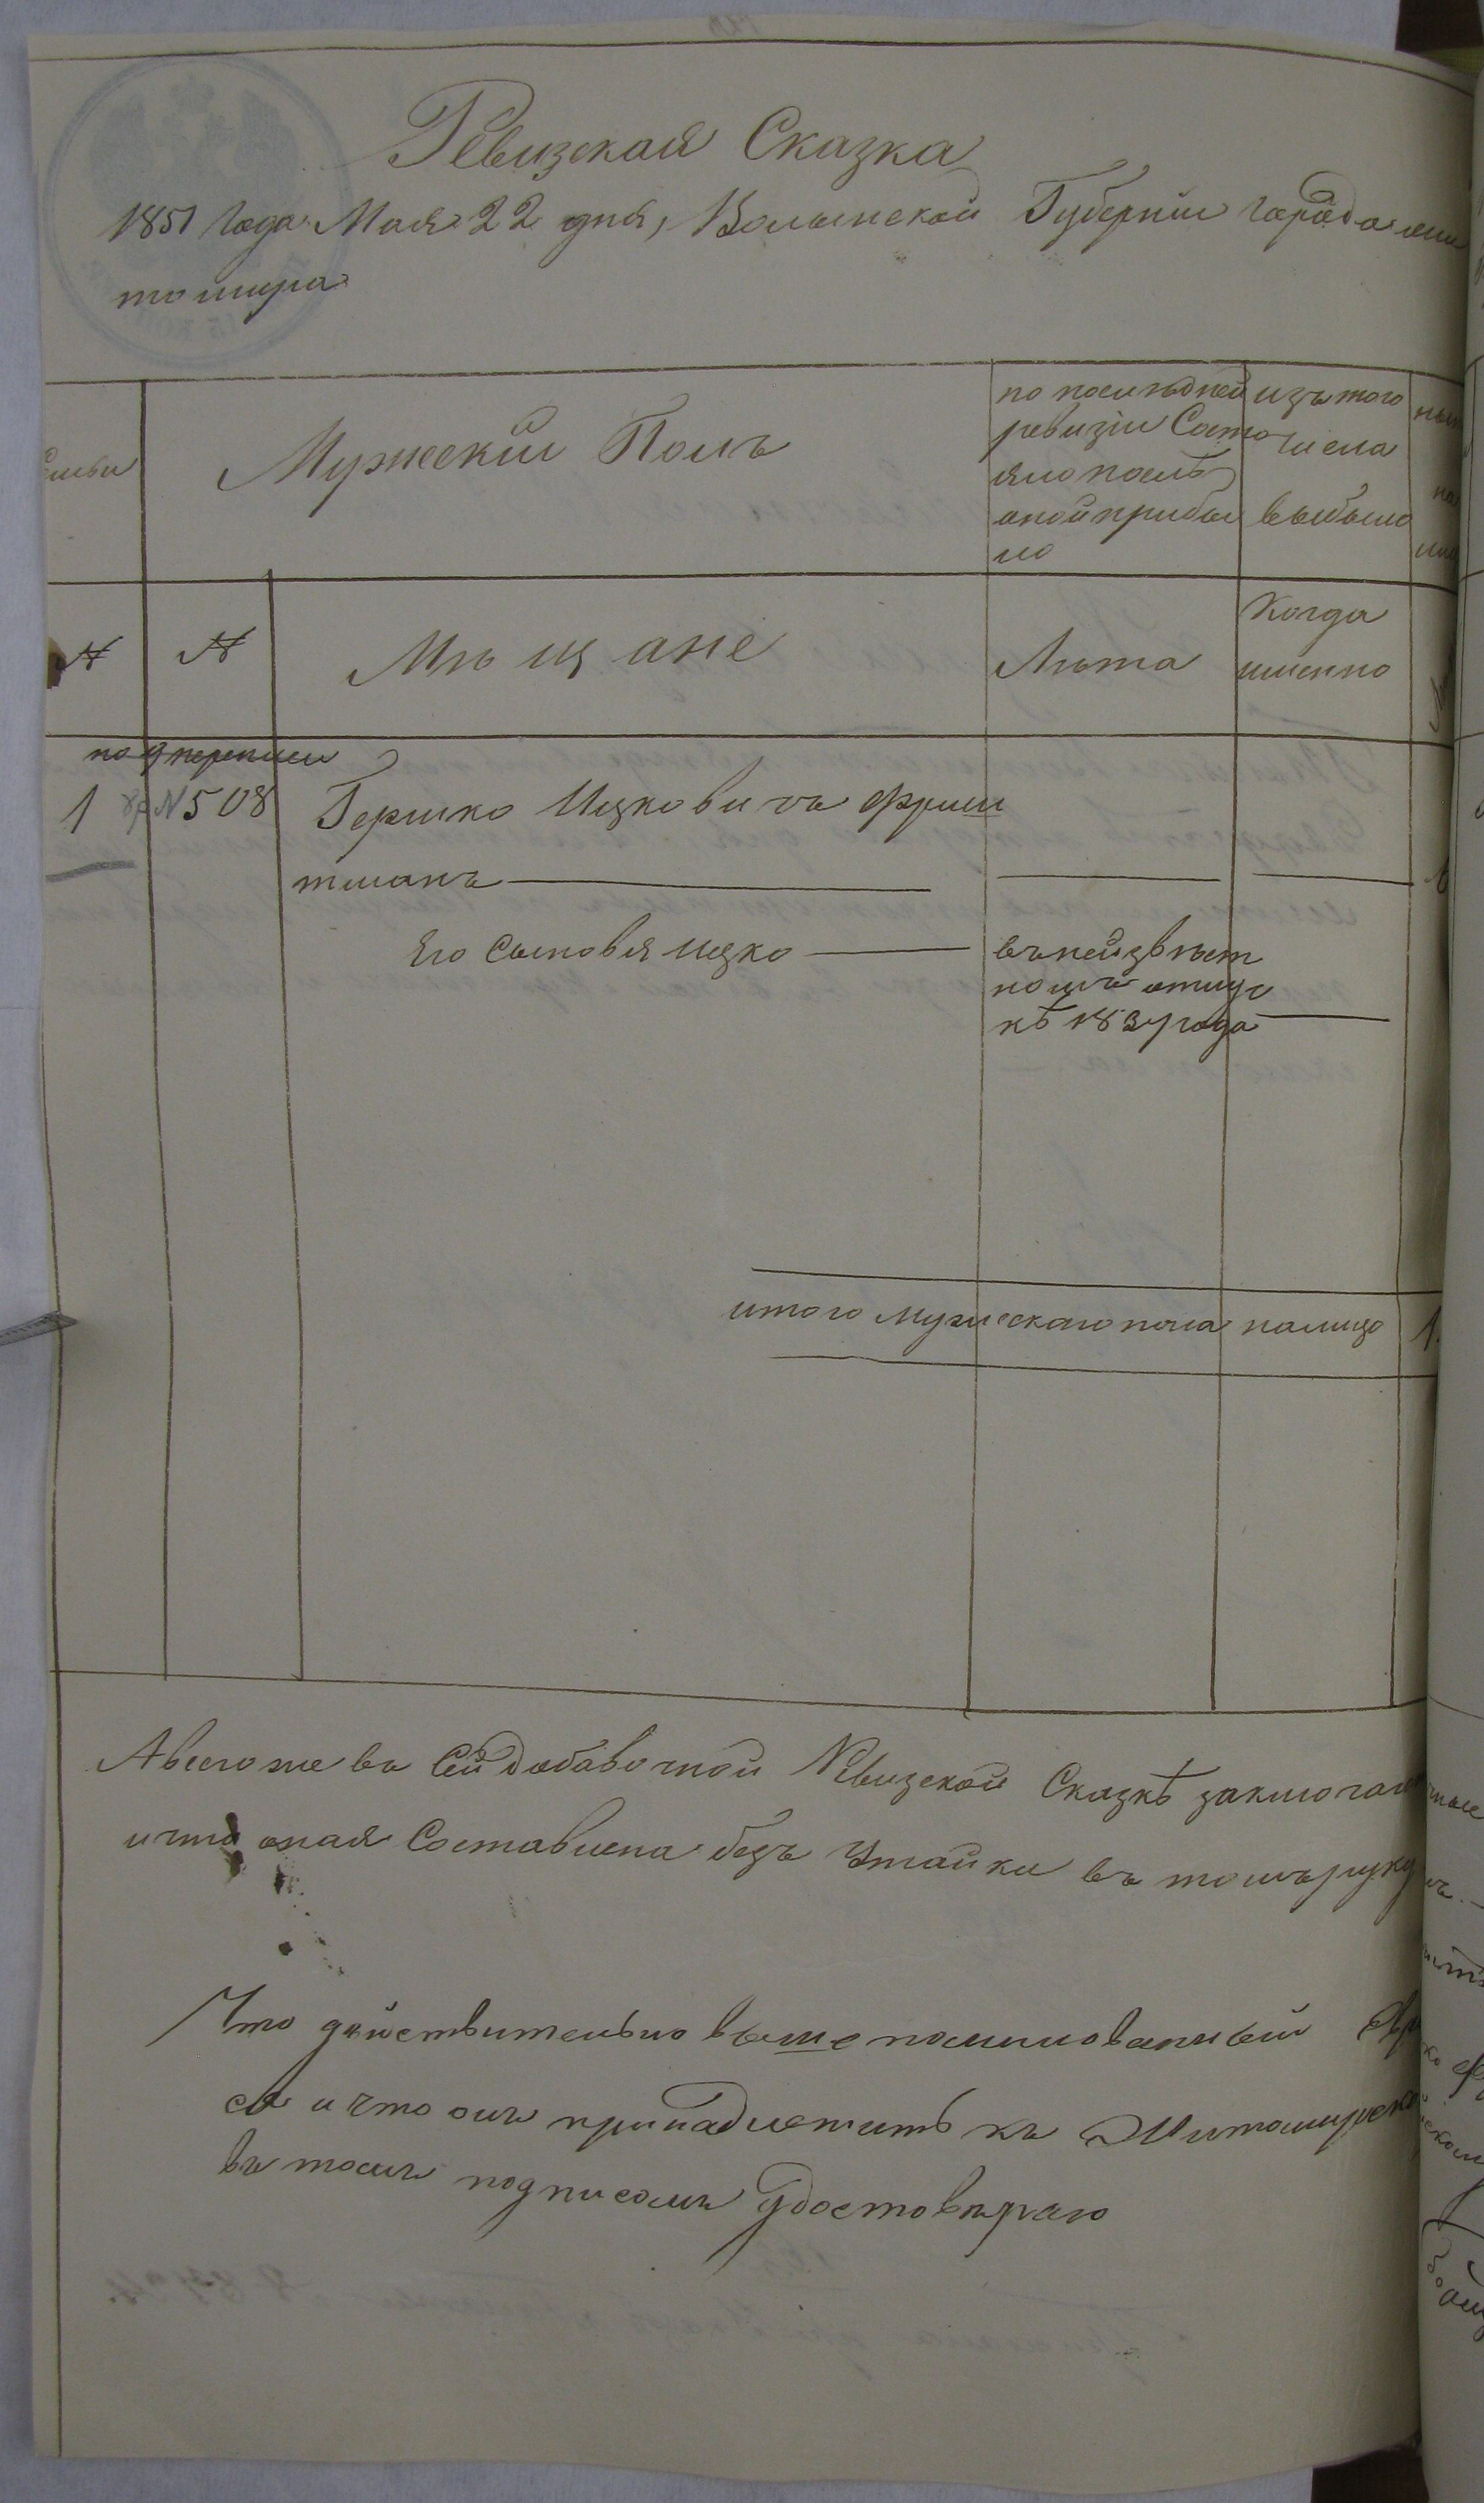 Ревизская Сказка
1851 года Мая 22 дня, Волынской Губерніи города жи
томира
Семьи
Мужескій Полъ
по последней
ревизіи Состо
яло после
оной прибы
ло
изъ того
числа
выбыло
ны
на
№
№
Мѣщане
Лѣта
Когда
именно
по 9 переписи
1
№ 508
Гершко Ицковичъ Фриш
тманъ
Его Сыновья Ицко
въ неизвѣст
ной отлуч
кѣ 1834 года
итого мужескаго пола на лицо
1.
А всего же въ Сей добавочной Ревизской Сказкѣ заключает
и что оная Составлена безъ Утайки въ томъ руку
Что действительно вышепоименованный
ся и что онъ принадлежитъ къ Житомирско
въ томъ подписомъ Удостовѣраю